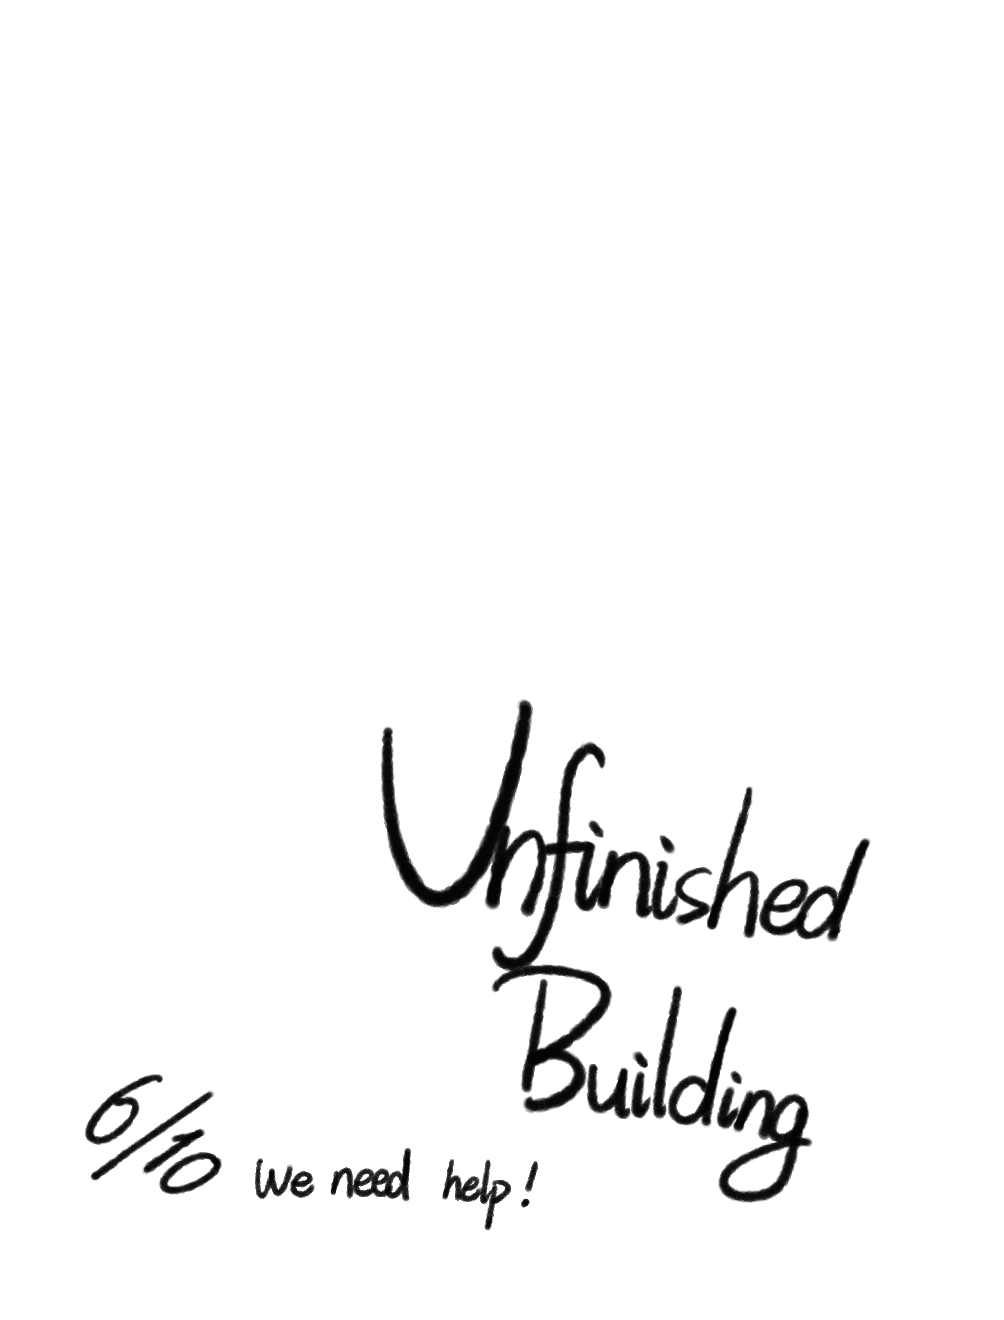 Unfinished
Building
6/10 We need help!